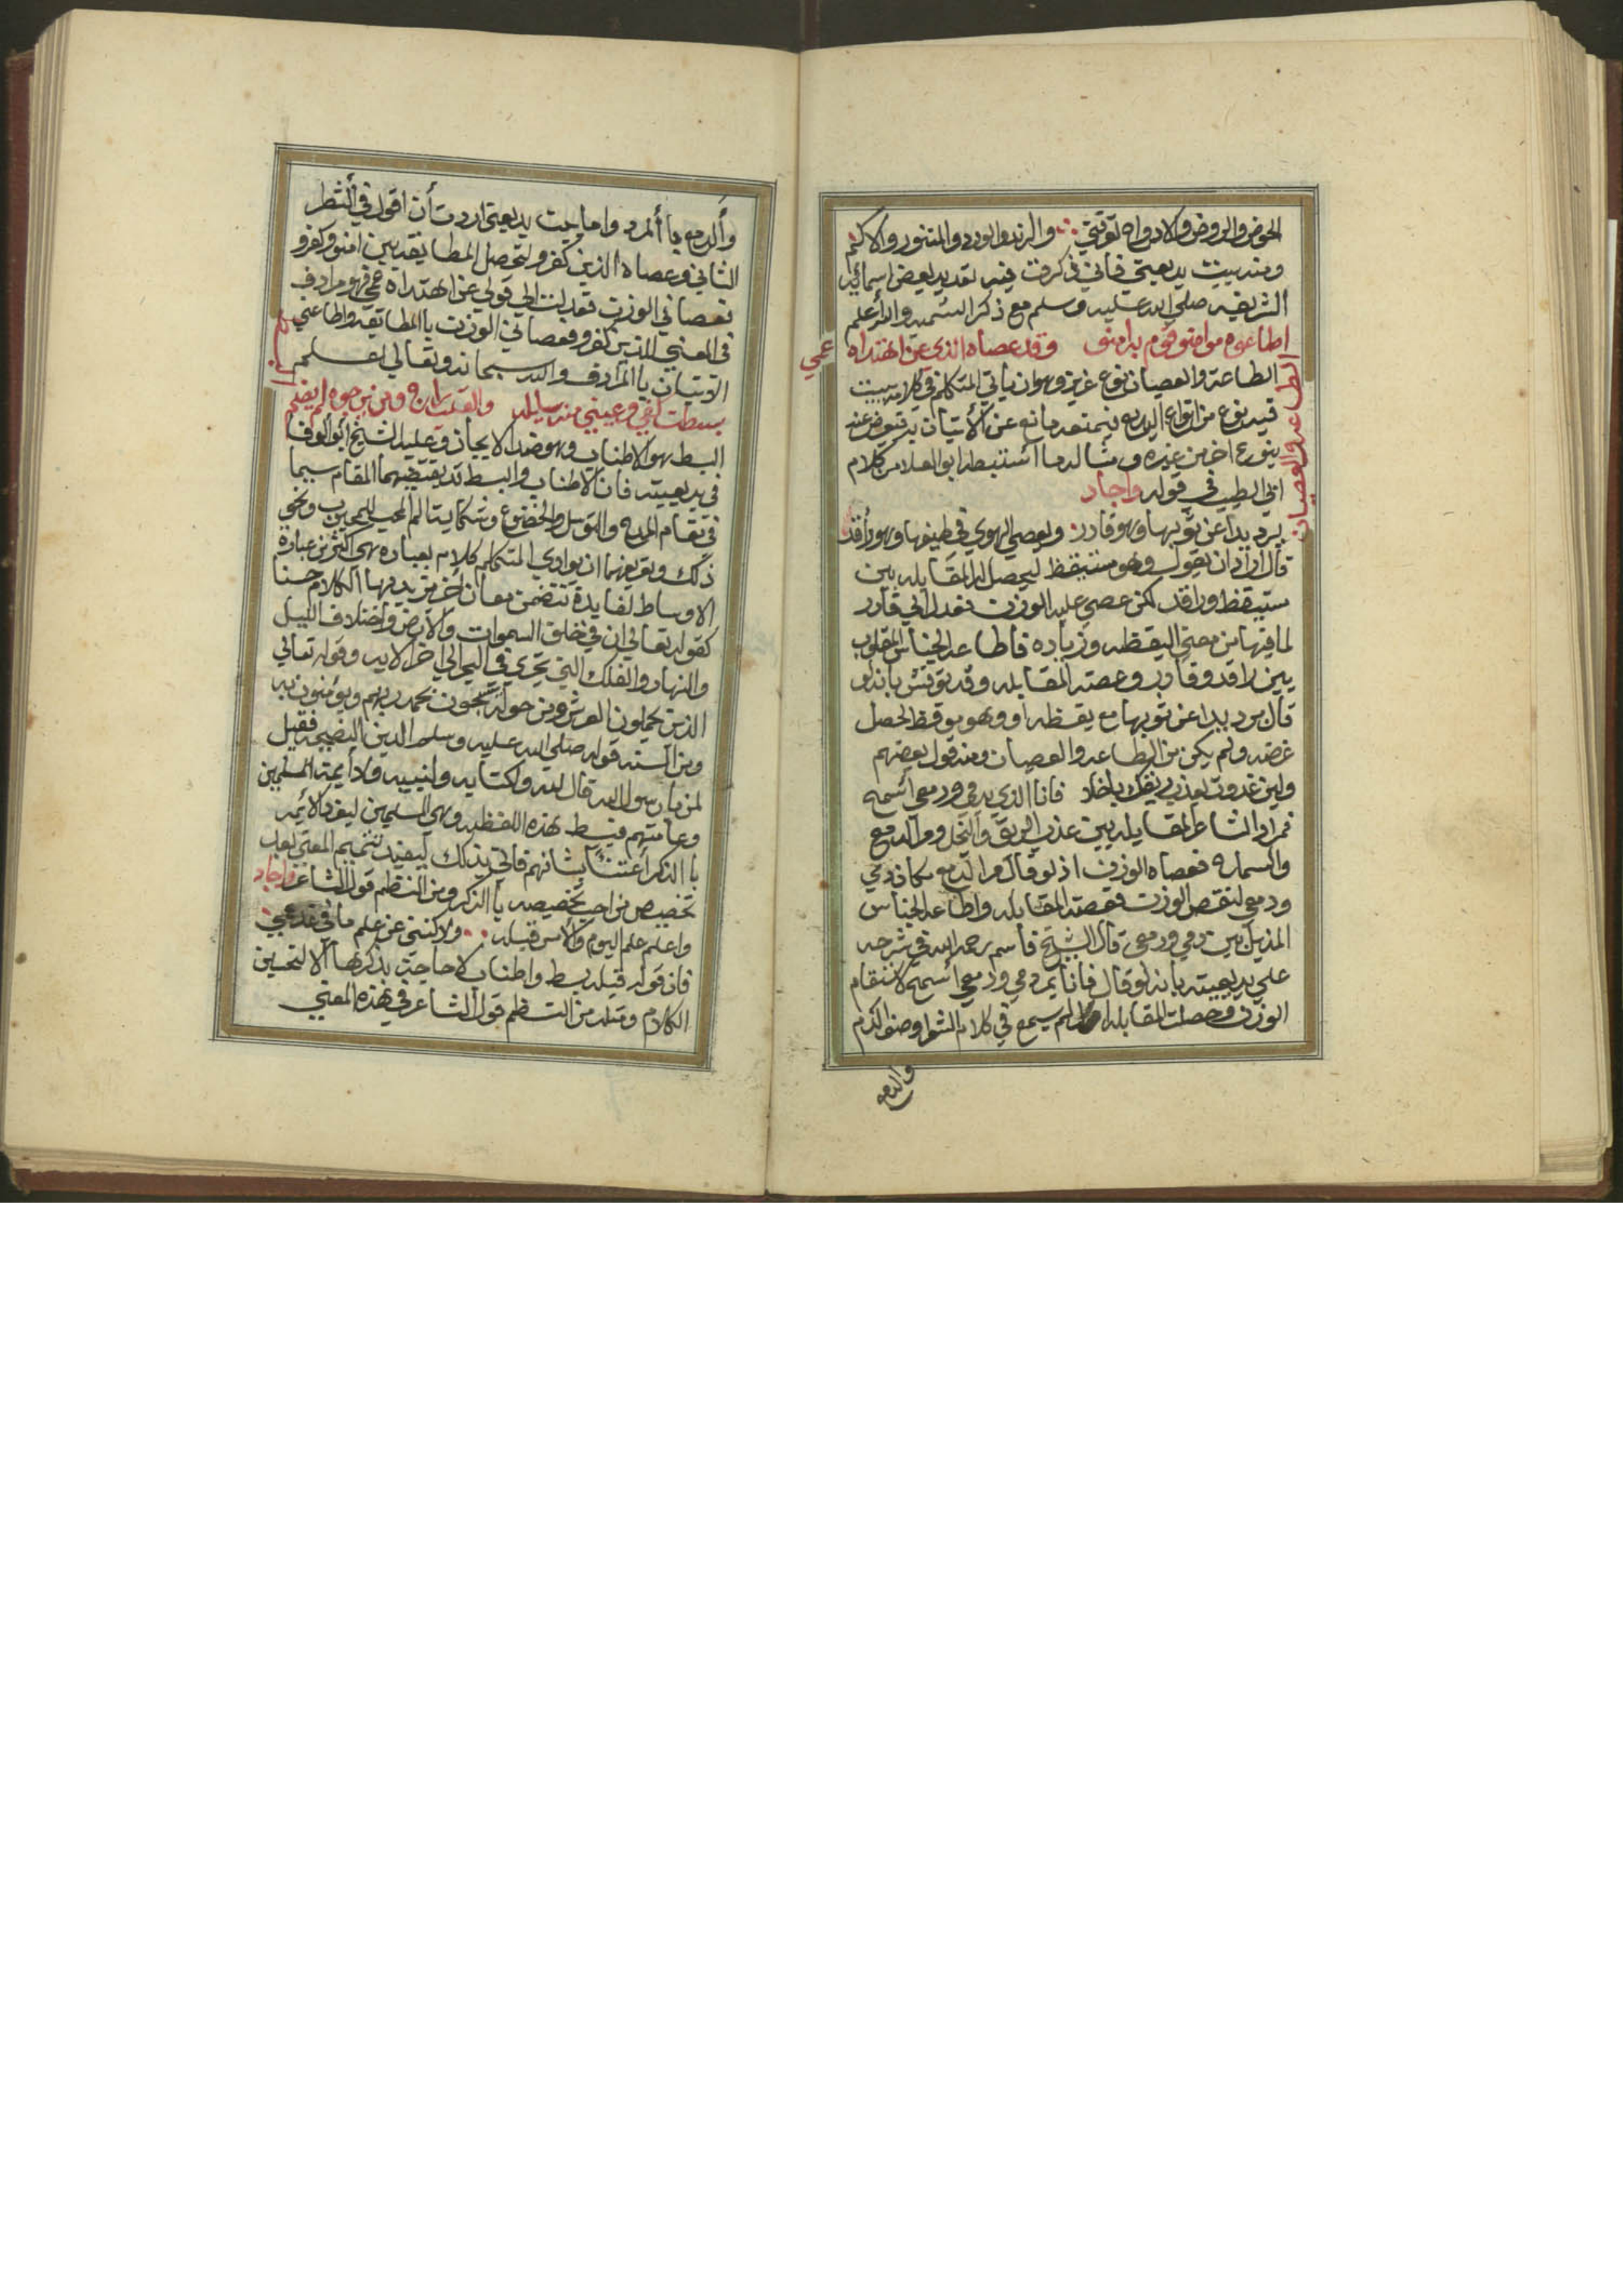 الحوض والروض والادواه توقتي والرند والورد والمنثور والاكم
ومنه بيت بديعتي فاني ذكرت فيه تعديد بعض اسمائه
الشريفه صلي الله عليه وسلم مع ذكر التسميه والله أعلم
اطاعوه قوم به وقد عصاه الذي عن اهتداه عمي
الطاعة والعصيان
الطاعة والعصيان نوع عزيز وهو ان ياتي المتكلم في كلامه ببيت
فيه نوع من انواع البديع فيمنعه مانع عن الأتيان به فيعوض عنه
بنوع اخر من غيره ومثاله ما استنبطه ابو العلا من كلام
ابي الطيب في قوله واجاد
يرد يدا عن ثوبها وهو قادر ويعصي الهوي في طيفها وهو راقد
قال اراد ان يقول وهو مستيقظ ليحصل له المقابله بين
مستيقظ وراقد لكن عصي عليه الوزن فعدل الي قادر
لما فيها من معني اليقظه وزياده فاطاعه الجناس المقلوب
بين راقد وقادر وعصته المقابله وقد نوقش بانه لو
قال يرد يدا عن ثوبها مع يقظه او وهو موقظ لحصل
غرضه ولم يكن من الطاعه والعصيان ومنه قول بعضهم
ولين غدوت بعذب ريقك باخلا فانا الذي بدمي ودمعي أسمح
فمراد الشاعر المقابله بين عذب الريق والبخل ومر الدمع
والسماحه فعصاه الوزن اذ لو قال مر الدمع مكان دمي
ودمعي لنقص الوزن فعصته المقابله واطاعه الجناس
المذيل بين دمي ودمعي قال الشيخ قاسم رحمه الله في شرحه
علي بديعيته بانه لو قال فانا بمر دمي ودمعي أسمح لاستقام
الوزن وحصلت المقابله لم يسمع في كلام الشعرا وصف الدم
والدمع
وألدمع باألمر واما بيت بديعتي اردت أن اقول في ألشطر
الثاني وعصاه الذين كفرو لتحصل المطابقه بين امنو وكفرو
فعصاني الوزن فعدلت الي قولي عن اهتداه عمي فهو مرادف
في المعني للذين كفرو فعصاني الوزن باالمطابقه واطاعني
الاتيان باالمرادف والله سبحانه وتعالي اعلم
بسطت كفي وعيني منه سايله والقلب راج ومن يرجوه لم يضم
البسط هو الاطناب وهو ضد الايجاز وعليه الشيخ ابو الوفا
في بديعيته فان الاطناب والبسط قد يقتضيهما المقام سيما
في مقام المدح والتوسل والخضوع وشكاية ألم المحب للمحبوب ونحو
ذلك وتعريفهما ان يوادي المتكلم كلام بعباره هي اكثر من عبارة
الاوساط لفايدة تتضمن معان اخر يزيد بها الكلام حسنا
كقوله تعالي ان في خلق السموات والأرض واختلاف الليل
والنهار والفلك التي تجري في البحر الي اخر الايه وقوله تعالي
الذين يحملون العرش ومن حوله يسبحون بحمد ربهم ويؤمنون به
ومن السنه قوله صلي الله عليه وسلم الدين النصيحه فقيل
لمن يا رسول الله قال لله ولكتابه ولنبيه ولأيمة المسلمين
وعامتهم فبسط هذه اللفظه وهي المسلمين ليفرد الأيمه
باالذكر أعتنآ بشانهم فاتي بذلك ليفيد تتميم المعني بعد
تخصيص من احب تخصيصه باالذكر ومن النظم قول الشاعر واجاد
واعلم علم اليوم والأمس قبله ولاكنني عن علم ما في غد عمي
فان قوله قبله بسط واطناب لا حاجة بذكرها الا لتحسين
الكلام ومثله من النظم قول الشاعر في هذه المعني